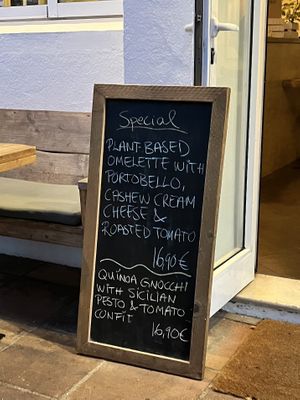 Special
PLANT-BASED
OMELETTE WITH
PORTOBELLO,
CASHEW CREAM
CHEESE &
ROASTED TOMATO
16,90 €
QUINOA GNOCCHI
WITH SICILIAN
PESTO & TOMATO
CONFIT
16,90€